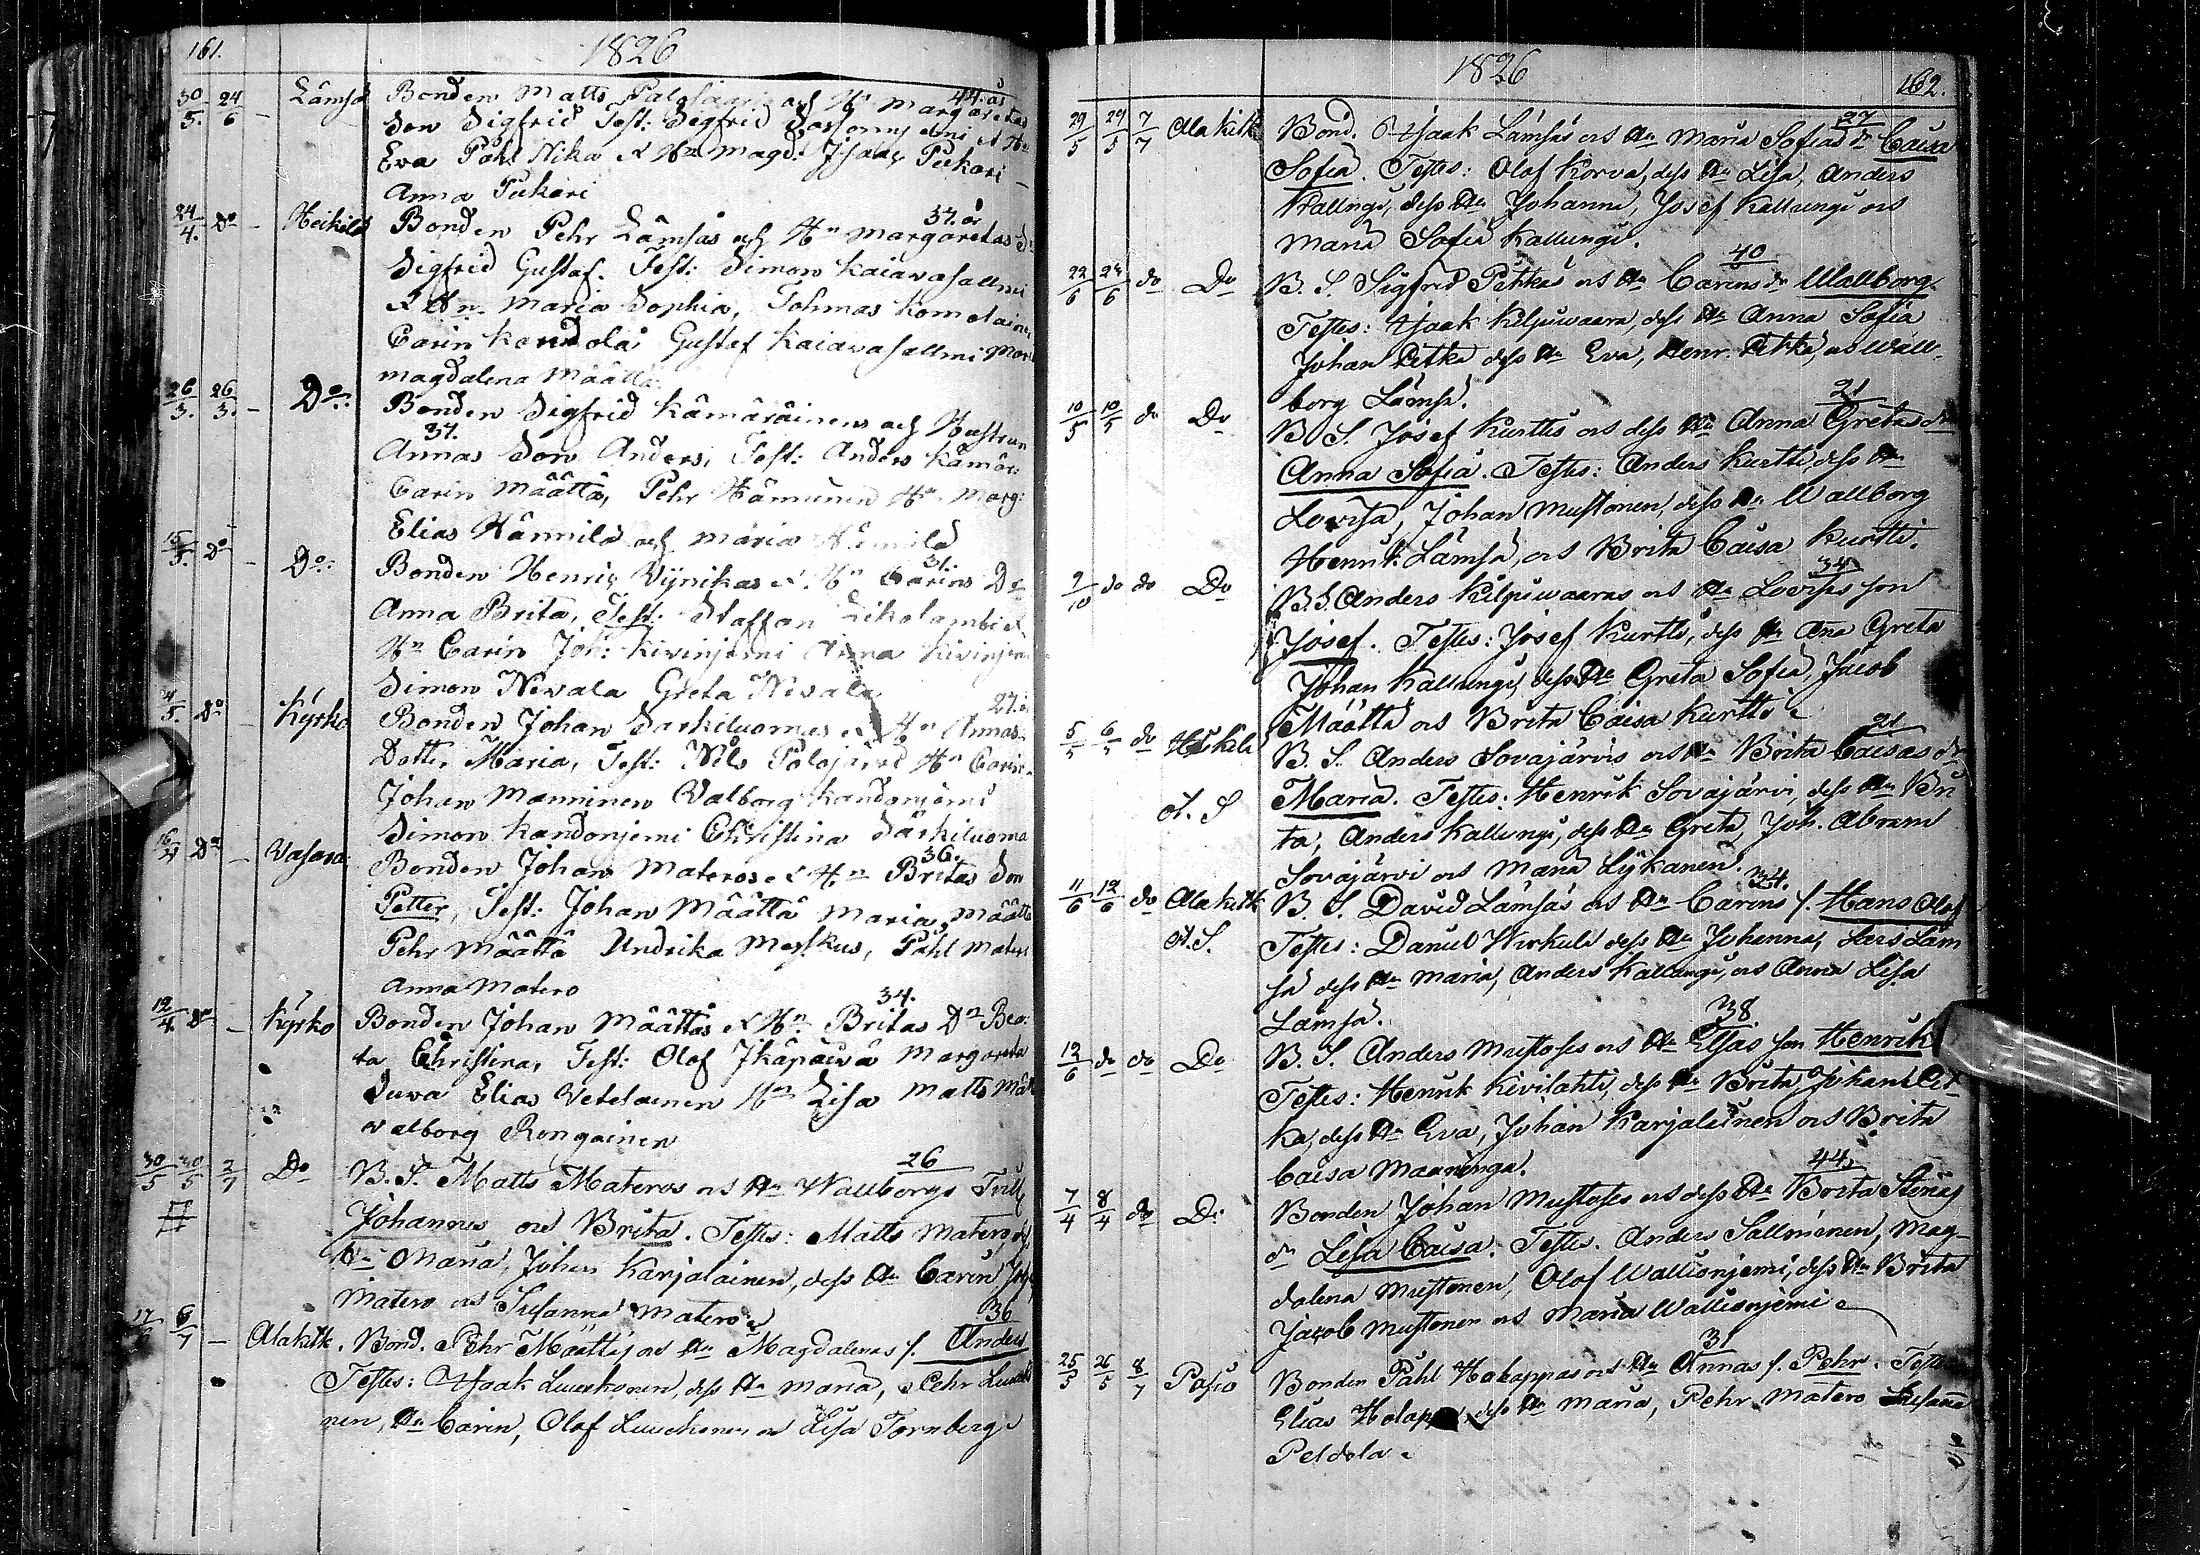 161. 1826
30/5. 24/6 - Lämsä Bonden Matts Palosaaris och Hn Margaretas 44. år
Son Sigfrid Test: Sigfrid
Eva Påhl Nika & Hn Magd. Isaac Pukari -
Anna Pukari
24/4. Do - Heikilä Bonden Pehr Lämsäs och Hn Margaretas 37. år
Sigfrid Gustaf. Test: Simon Kaiavasallmi
& Hn Maria Sophia, Tohmas
Carin Kandola Gustaf Kaiavasallmi
Magdalena Määtta
26/3. 26/3. - Do: Bonden Sigfrid Kämäräinens och Hustrun
37.
Annas Son Anders, Test: Anders Kämär:
Carin Määttä, Pehr Hämminen Hn Marg:
Elias Hännilä och Maria
Do - Do: Bonden Henric Vijnikas & Hn Carins 31. Dr
Anna Brita, Test: Staffan
Hn Carin Joh: Kivinjemi Anna
Simon Nevala Greta Nevala
Do - Kyrko Bonden Johan Särkiluomas & Hn Annas 27.
Dotter Maria, Test: Nils Polojärvi Hn Carin
Johan Manninen Valborg Kandonjemi
Simon Kandonjemi Christina Särkiluoma
Do - Vasara: Bonden Johan Materos & Hn Britas 36. Son
Petter, Test: Johan Määttä Maria Määttä
Pehr Määttä Undrika Påhl Matero
Anna Matero
12/4. Do - Kyrko Bonden Johan Määttäs & Hn Britas 34. Dr Bea:
ta Christina, Test: Olof Ikäpäivä Margareta
Suva Elias Vetelainen Hn Lisa Matts
Valborg Rongainen
30/5 30/5 2/7 Do B. S. Matts Materos os Hu Wallborgs 26 Tvill
Johannes os Brita. Testes: Matts Matero,
Hu Maria, Johan Karjalainen, dess Hu Carin
Matero os Susanna Matero
6/7 - Alakitk. Bond. Pehr Määttäs os Hu Magdalenas s. Anders 36
Testes: Isaak Luuskonen, dess Hu Maria, Pehr
nen, Hu Carin, Olof Luuskonen os Lisa Tornberg
1826 162.
29/5 29/5 7/7 Alakitk Bond. S. Isaak Lämsäs os Hu Maria Sofias 27 dr Caisa
Sofia. Testes: Olof Korva, dess Hu Lisa, Anders
Kallungi, dess Hu Johanna, Josef Kallungi os
Maria Sofia Kallungi.
22/6 24/6 do Do B. S. Sigfrid Petkas os Hu Carins 40 dr Wallborg.
Testes: Isaak Kilpiwaara, dess Hu Anna Sofia
Johan Petka dess Hu Eva, Henr. Petka, os Wall-
borg Lämsä.
10/5 10/5 do Do B. S. Josef Kurttis os dess Hu Anna Gretas 21 dr
Anna Sofia. Testes: Anders Kurtti, dess Hu
Lovisa, Johan Mustonen, dess Hu Wallborg
Henrik Lämsä, os Brita Caisa Kurtti.
9/10 do do Do B. S. Anders Kilpiwaaras os Hu Lovisas 34 son
Josef. Testes: Josef Kurtti, dess Hu Ana Greta
Johan Kallungi, dess Hu Greta Sofia, Jacob
Määttä os Brita Caisa Kurtti
5/5 6/5 do Heikilä B. S. Anders Sovajärvis os Hu Brita Caisas 21 dr
A. S Maria. Testes: Henrik Sovajärvi, dess Hu Bri
ta, Anders Kallungi, dess Hu Greta, Joh. Abram
Sovajärvi os Maria Lykanen.
11/6 12/6 do Alakitk B. S. David Lämsäs os Hu Carins 34. s. Hans Olof
A. S. Testes: Daniel Wirkula dess Hu Johanna, Lars Läm
sä dess Hu Maria, Anders Kallungi, os Anna Lisa
Lämsä.
12/6 do do Do B. S. Anders Mustoses os Hu Elsas 38. son Henrik
Testes: Henrik Kivilahti, dess Hu Brita, Johan Pet-
ka, dess Hu Eva, Johan Karjalainen os Brita
Caisa Maaninga.
7/4 8/4 do Do Bonden Johan Mustoses os dess Hu Brita Stinas 44
dr Lisa Caisa. Testes. Anders Sallminen, Mag-
dalena Mustonen, Olof Wallionjemi, dess Hu Brita
Jacob Mustonen os Maria Wallionjemi
25/5 26/5 8/7 Posio Bonden Påhl Holappas os Hu Annas 31 s. Pehr. Testes
Elias dess Hu Maria, Pehr Matero Susanna
Peldola